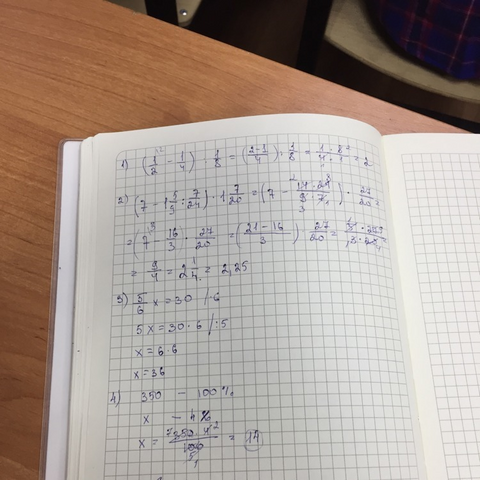 1) (1/2 - 1/4) : 1/8 = (2-1/4) : 1/8 = 1 · 8/4 · 1 = 2
2) (7 - 1 5/9 : 7/24) · 1 7/20 = (7 - 14 · 24/9 · 7) · 27/20 =
= (7 - 16/3) · 27/20 = (21 - 16/3) 27/20 = 5 · 27/3 · 20
= 9/4 = 2 1/4 = 2,25
3) 5/6 x = 30 / · 6
5x = 30 · 6 / : 5
x = 6 · 6
x = 36
4) 350 - 100 %
x - 4 %
x = 350 · 4/100 = 14